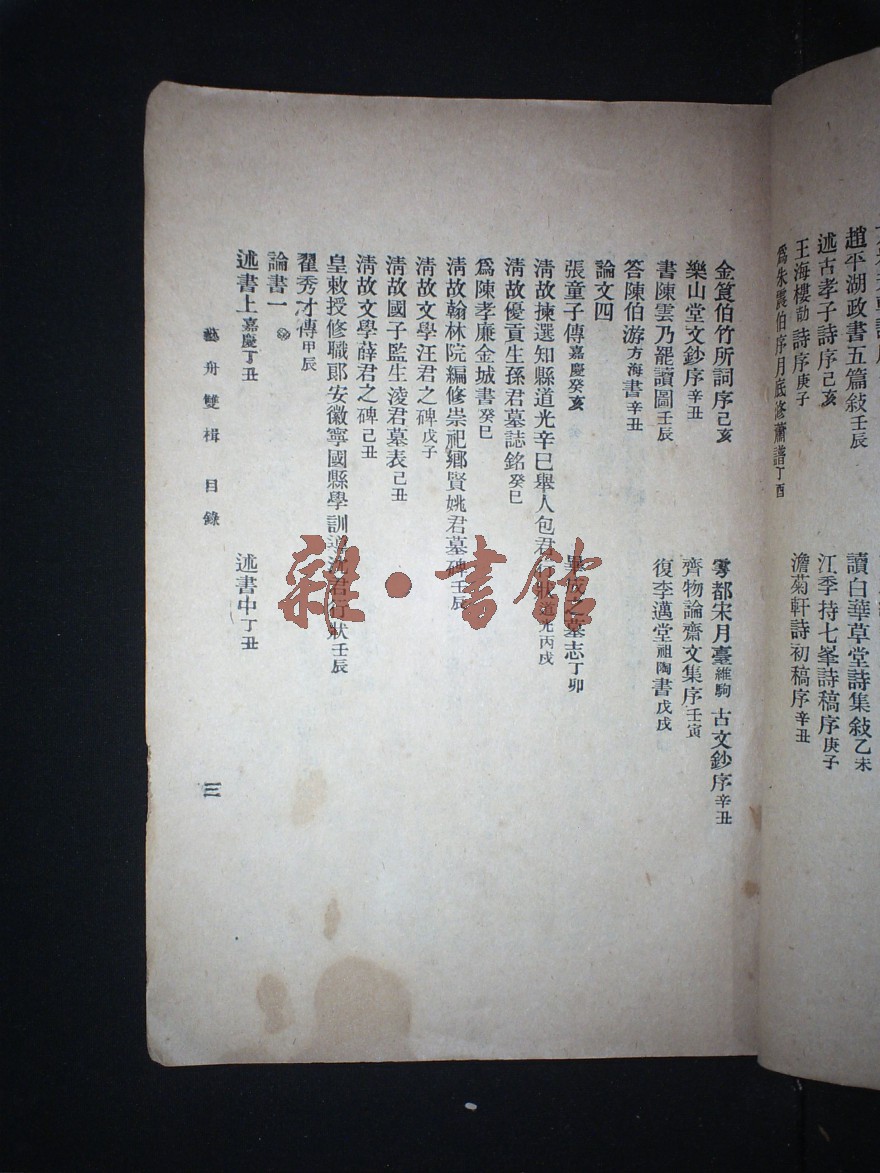 趙平湖政書五篇敍壬辰
讀白華草堂詩集敍乙未
述古孝子詩序己亥
江季持七峯詩稿序庚子
王海樓勛詩序庚子
澹菊軒詩初稿序辛丑
爲朱震伯序月底修簫譜丁酉
金筤伯竹所詞序己亥
雩都宋月臺維駒古文鈔序辛丑
樂山堂文鈔序辛丑
齊物論齋文集序壬寅
書陳雲乃罷讀圖壬辰
復李邁堂祖陶書戊戌
答陳伯游方海書辛丑
論文四
張童子傳嘉慶癸亥
畢成之墓志丁卯
清故揀選知縣道光辛巳舉人包君行狀道光丙戌
清故優貢生孫君墓誌銘癸巳
爲陳孝廉金城書癸巳
清故翰林院編修崇祀鄉賢姚君墓碑壬辰
清故文學汪君之碑戊子
清故國子監生淩君墓表己丑
清故文學薛君之碑己丑
皇敕授修職郎安徽寧國縣學訓導沈君行狀壬辰
翟秀才傳甲辰
論書一
述書上嘉慶丁丑
述書中丁丑
藝舟雙楫 目錄
三
雜·書館